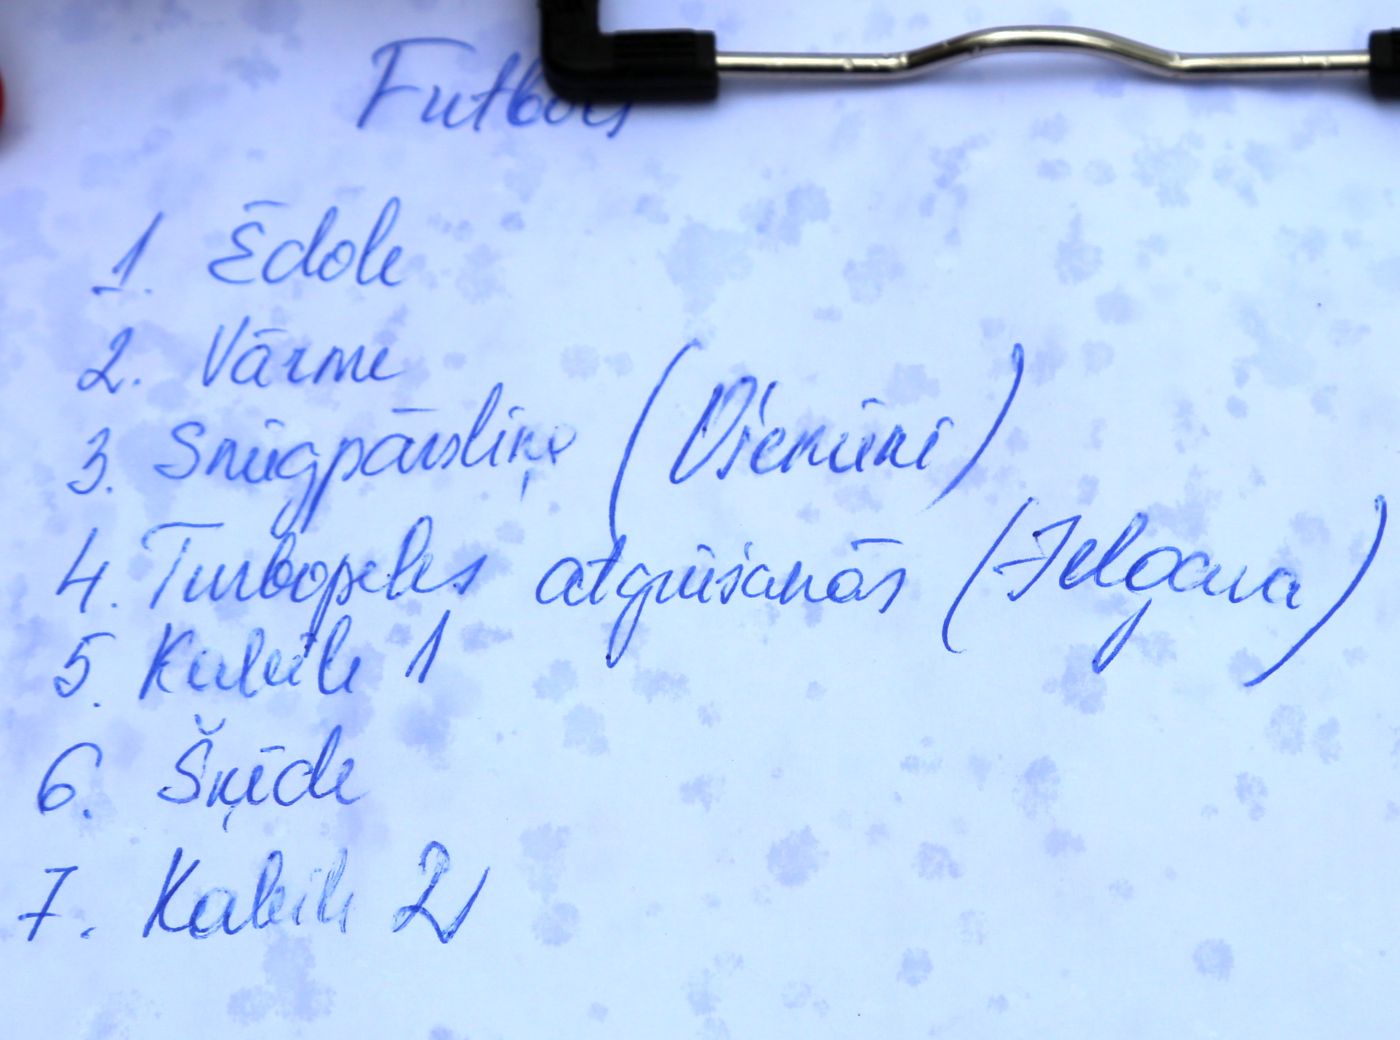 Futbols
1. Ēdole
2. Vārme
3. Sniegpārsliņa
4. Turbopeles atgriešanās (Jelgava)
5. Kabile 1
6. Šķēde
7. Kabile 2